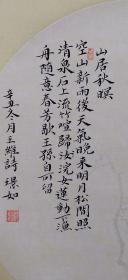 山居秋暝
空山新雨後天氣晚来明月松間照
清泉石上流竹喧歸浣女蓮動下漁
舟隨意春芳歇王孫自可留
辛丑冬月王維詩璟如